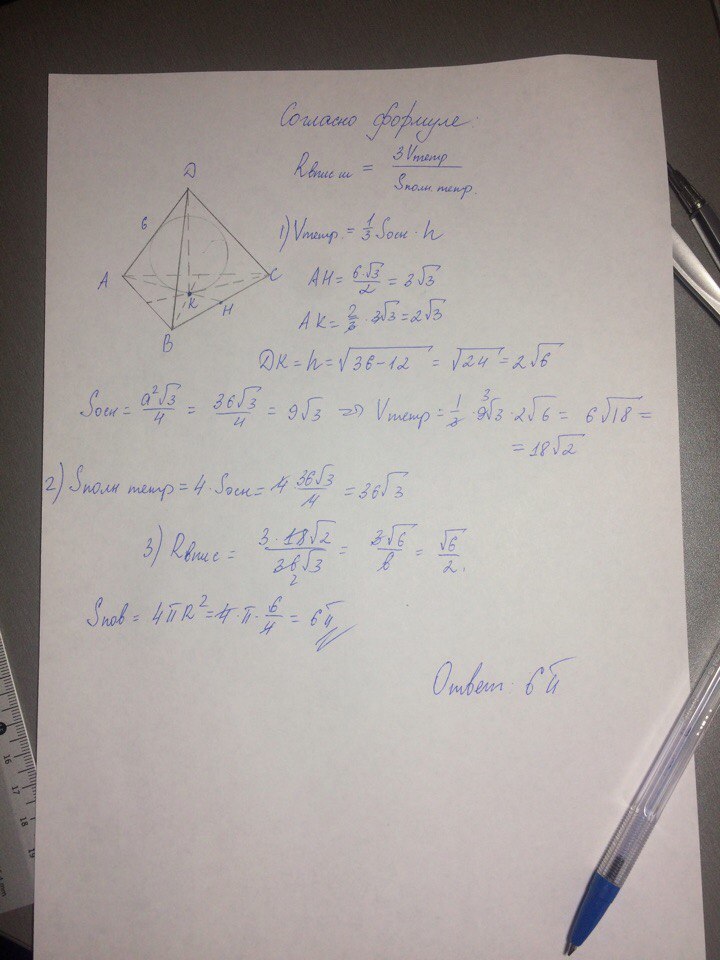 Согласно формуле:
Rвпис ш = 3Vтетр / Sполн. тетр.
D
6
A
C
K
H
B
1) Vтетр. = 1/3 Sосн · h
AH = 6·√3/2 = 3√3
AK = 2/3 · 3√3 = 2√3
DK = h = √36-12 = √24 = 2√6
Sосн = a²√3/4 = 36√3/4 = 9√3 => Vтетр = 1/3 · 9√3 · 2√6 = 6√18 =
= 18√2
2) Sполн тетр = 4 · Sосн = 4 · 36√3/4 = 36√3
3) Rвпис = 3·18√2 / 36√3 = 3√6/6 = √6/2.
Sпов = 4πR² = 4·π·6/4 = 6π
Ответ: 6π
16
17
18
19